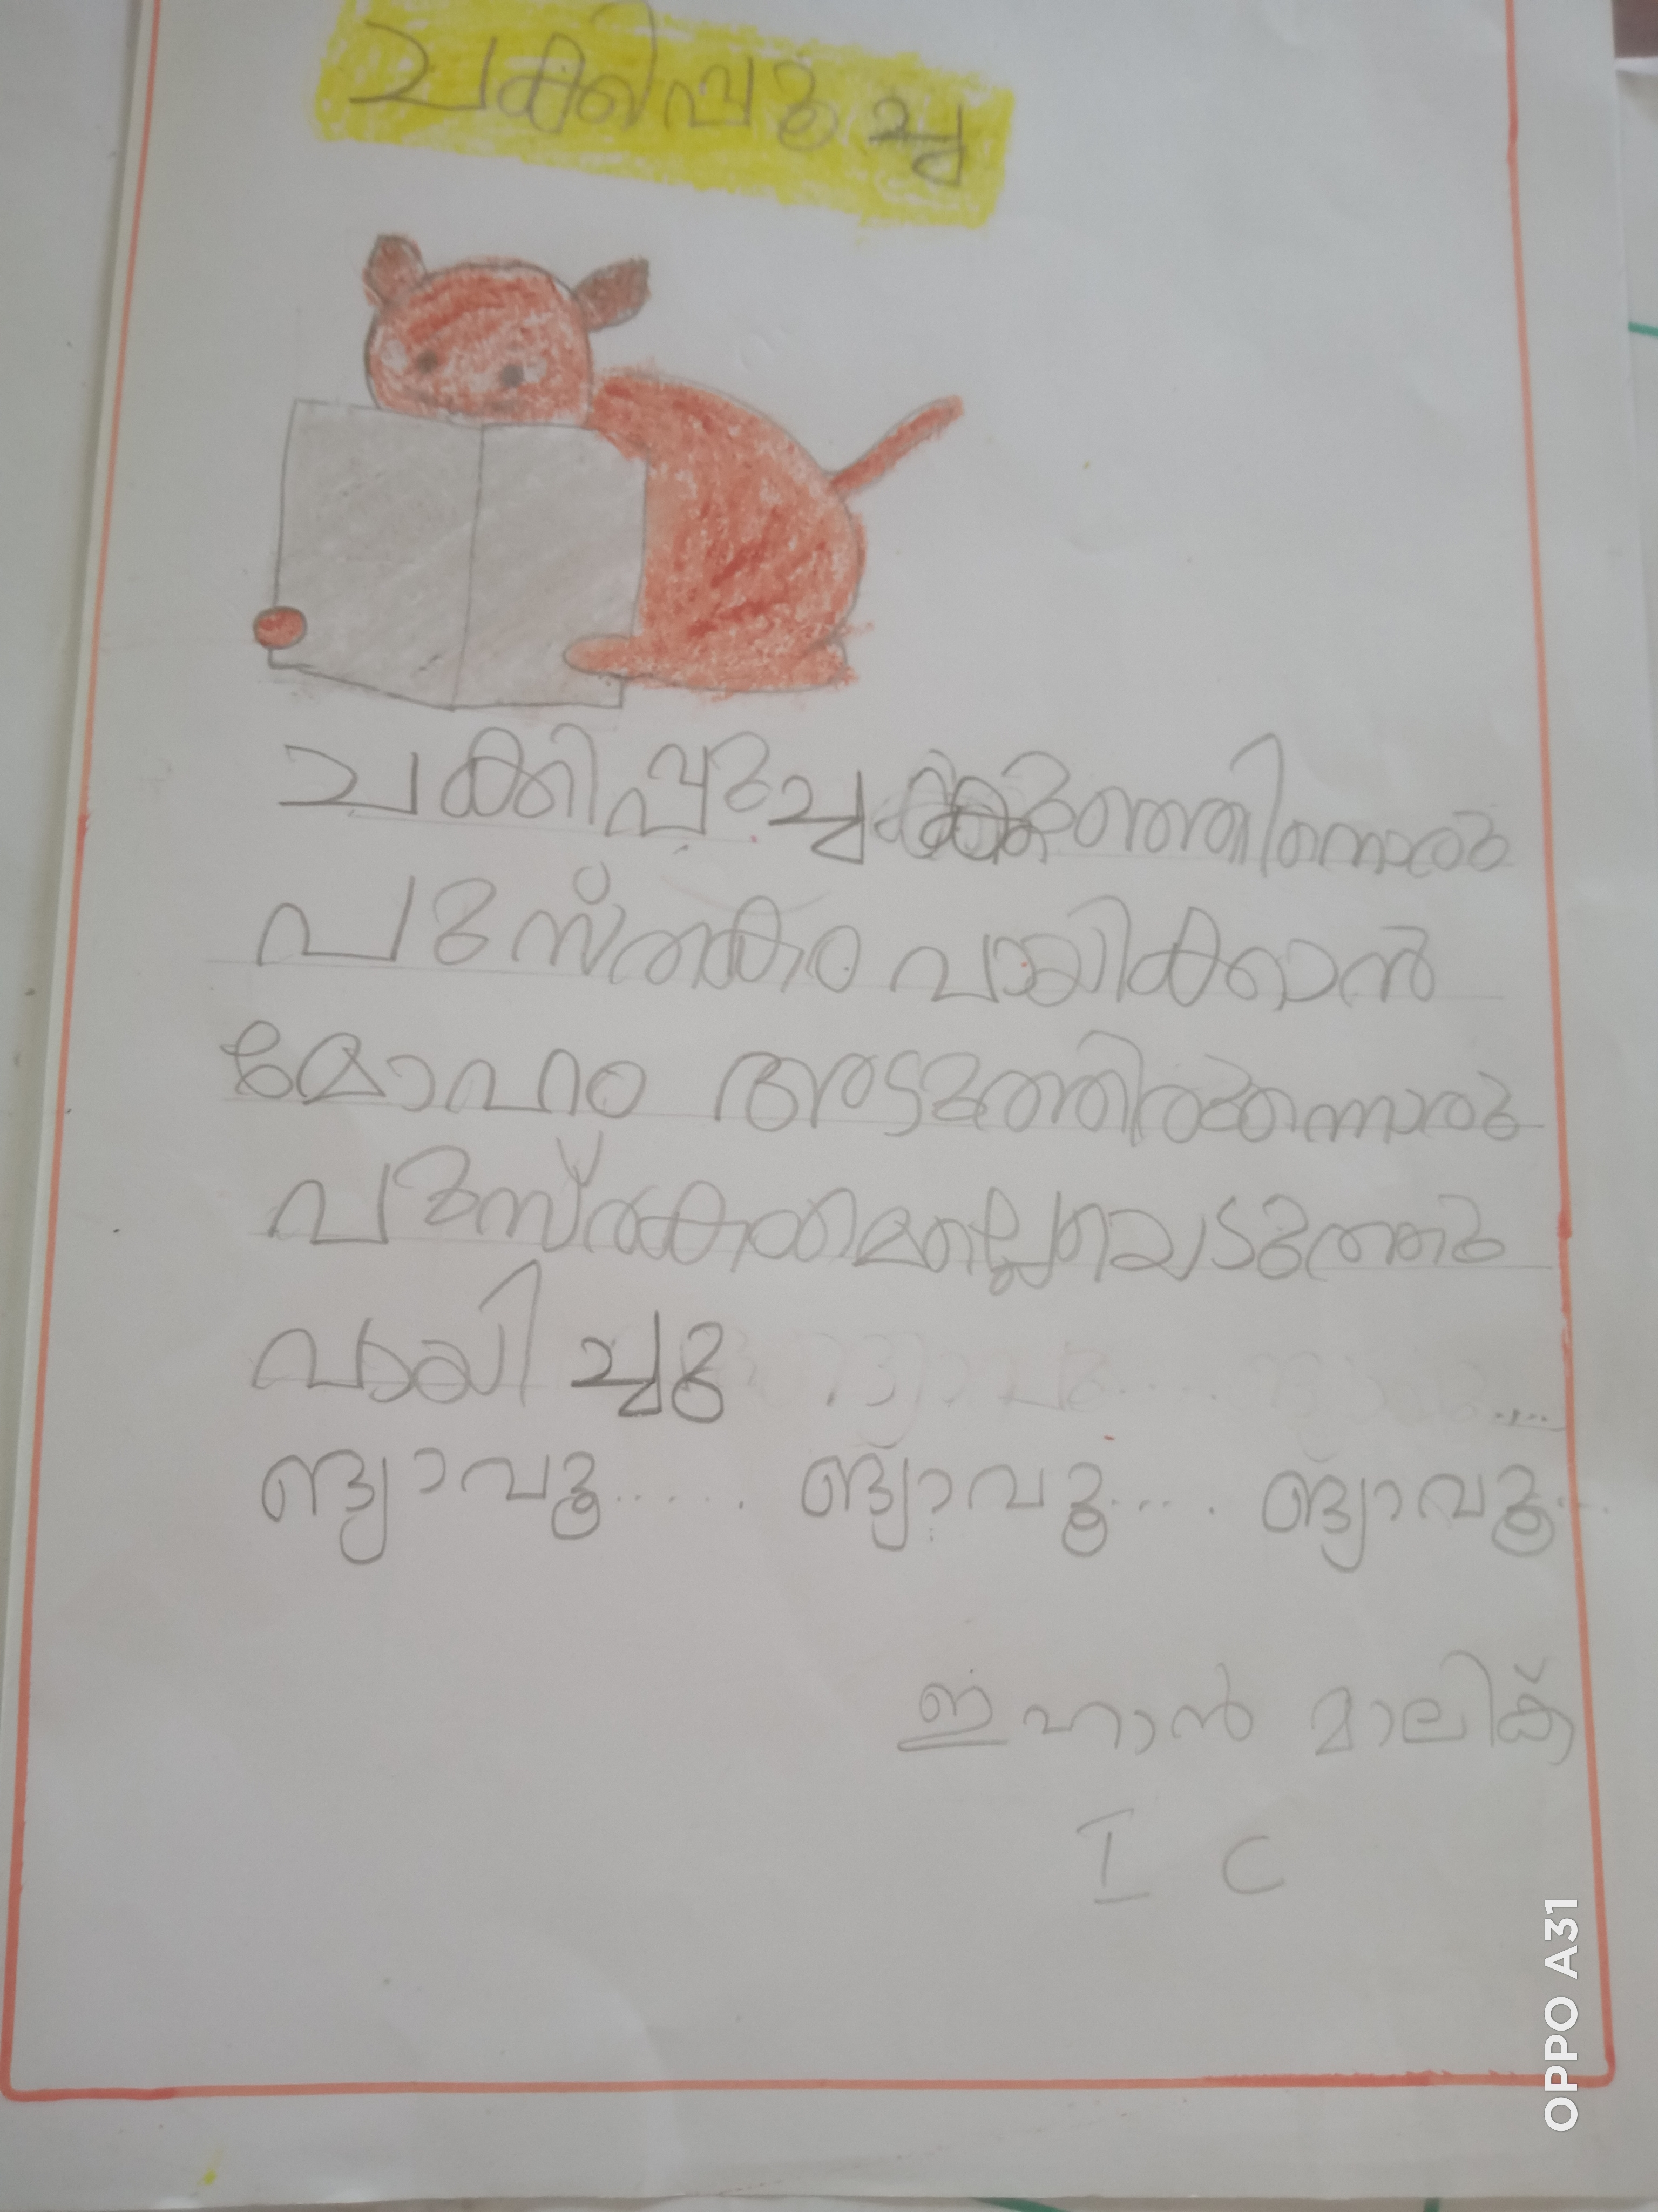 ചക്കിപ്പൂച്ച
ചക്കിപ്പൂച്ചക്കുഞ്ഞിനൊരു
പുസ്തകം വായിക്കാൻ
മോഹം അടുത്തിരുന്നൊരു
വായിച്ചു
ങ്യാവൂ..... ങ്യാവൂ.... ങ്യാവൂ...
ഇഹാൻ മാലിക്
I C
OPPO A31